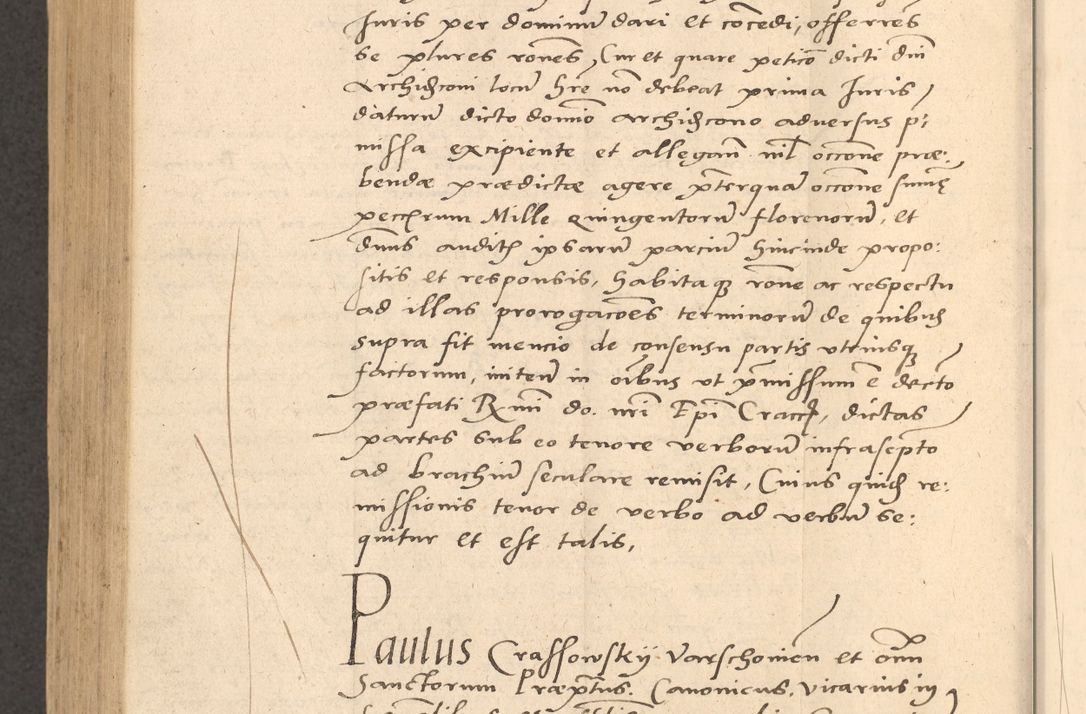 Juris per dominũ dari et cõcedi, offerres
se plures rones, Cur et quare peticõ dicti dni
Archidconi locũ hre nõ debeat prima Juris,
daturũ dicto domio archidcono adversus p͛:
missa excipiente et allegan̄ nil occone præ:,
bendæ prædictæ agere p̄terquã occone sume
peccrum Mille Quingentorũ florenorũ, et
dnus auditis ipsarũ parciũ hincinde propo:
sitis et responsis, habitaq̨ rone ac respectu
ad illas prorogacões terminorũ de quibus
supra fit mencio de consensu partis utriusq̨
factorum, initen̄ in oibus ut p̄missum ẽ decto
præfati R mi do. nri Epi Cracc, dictas
partes sub eo tenore verborũ infrascpto
ad brachiũ seculare remisit, Cuius quid re:
missionis tenor de verbo ad verbũ se:
quitur et est talis,
Paulus Crassowskij Varschovien̄ et omn̄
Sanctorum Præptus. Canonicus, vicarius in